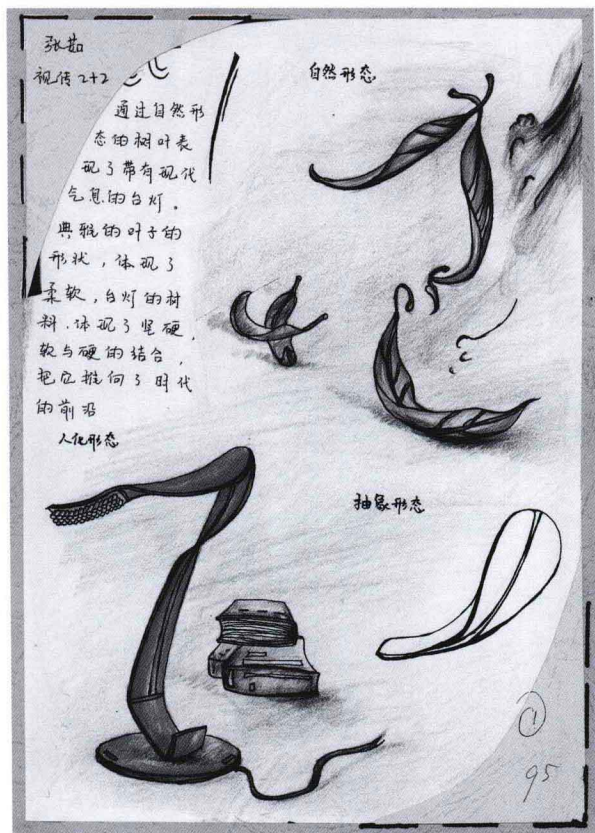 张茹
视传2+2
通过自然形
态的树叶表
现了带有现代
气息的台灯。
典雅的叶子的
形状，体现了
柔软，台灯的材
料.体现了坚硬，
软与硬的结合，
把它推向了时代
的前沿
自然形态
人化形态
抽象形态
1
95